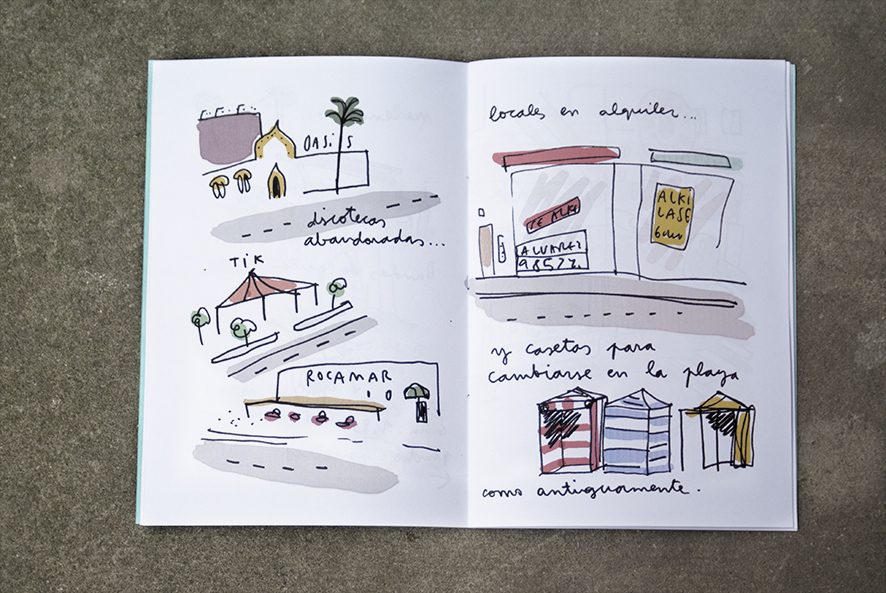 OASIS
discotecas
abandonadas...
TIK
ROCAMAR
locales en alquiler...
SE ALKI
ALVAREZ
ALKI
LASE
y casetas para
cambiarse en la playa
como antiguamente.